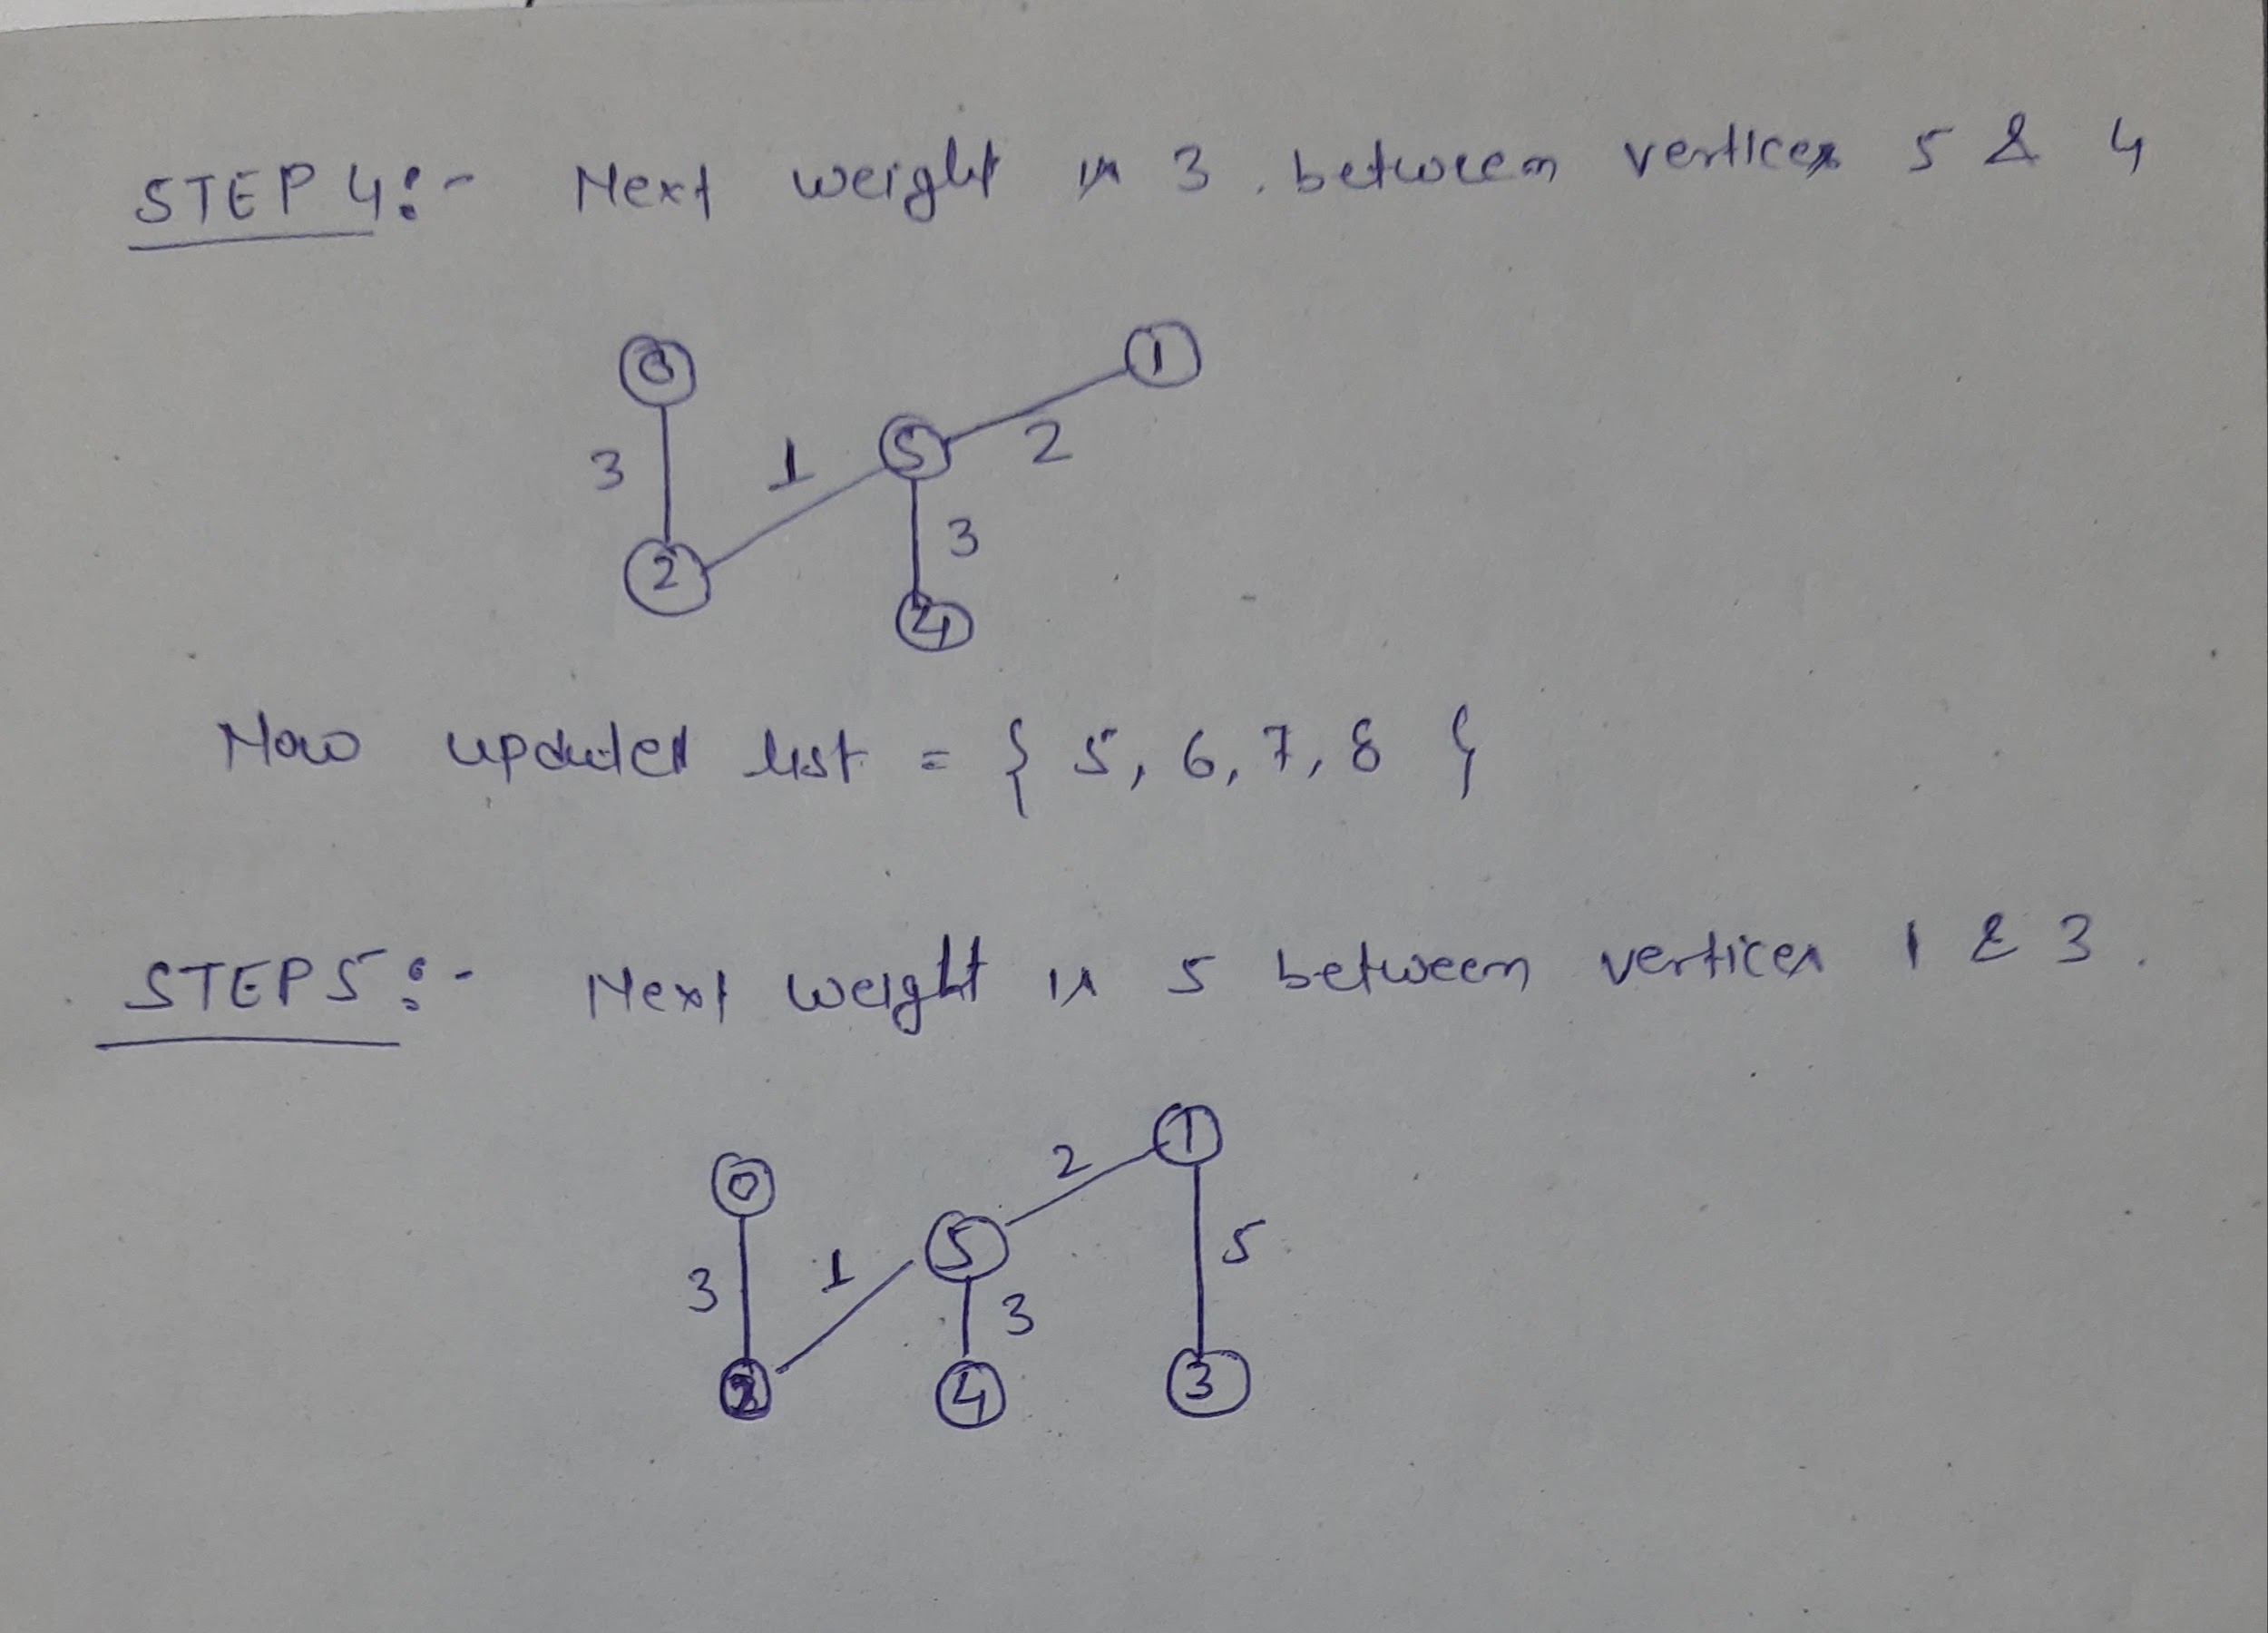 STEP 4:- Next weight is 3. between vertices 5 & 4
0 1
3 1 5 2
2 3
4
Now updated list = { 5, 6, 7, 8 }
STEP 5:- Next weight is 5 between vertices 1 & 3.
2 1
0
3 1 5 5
3
2 4 3